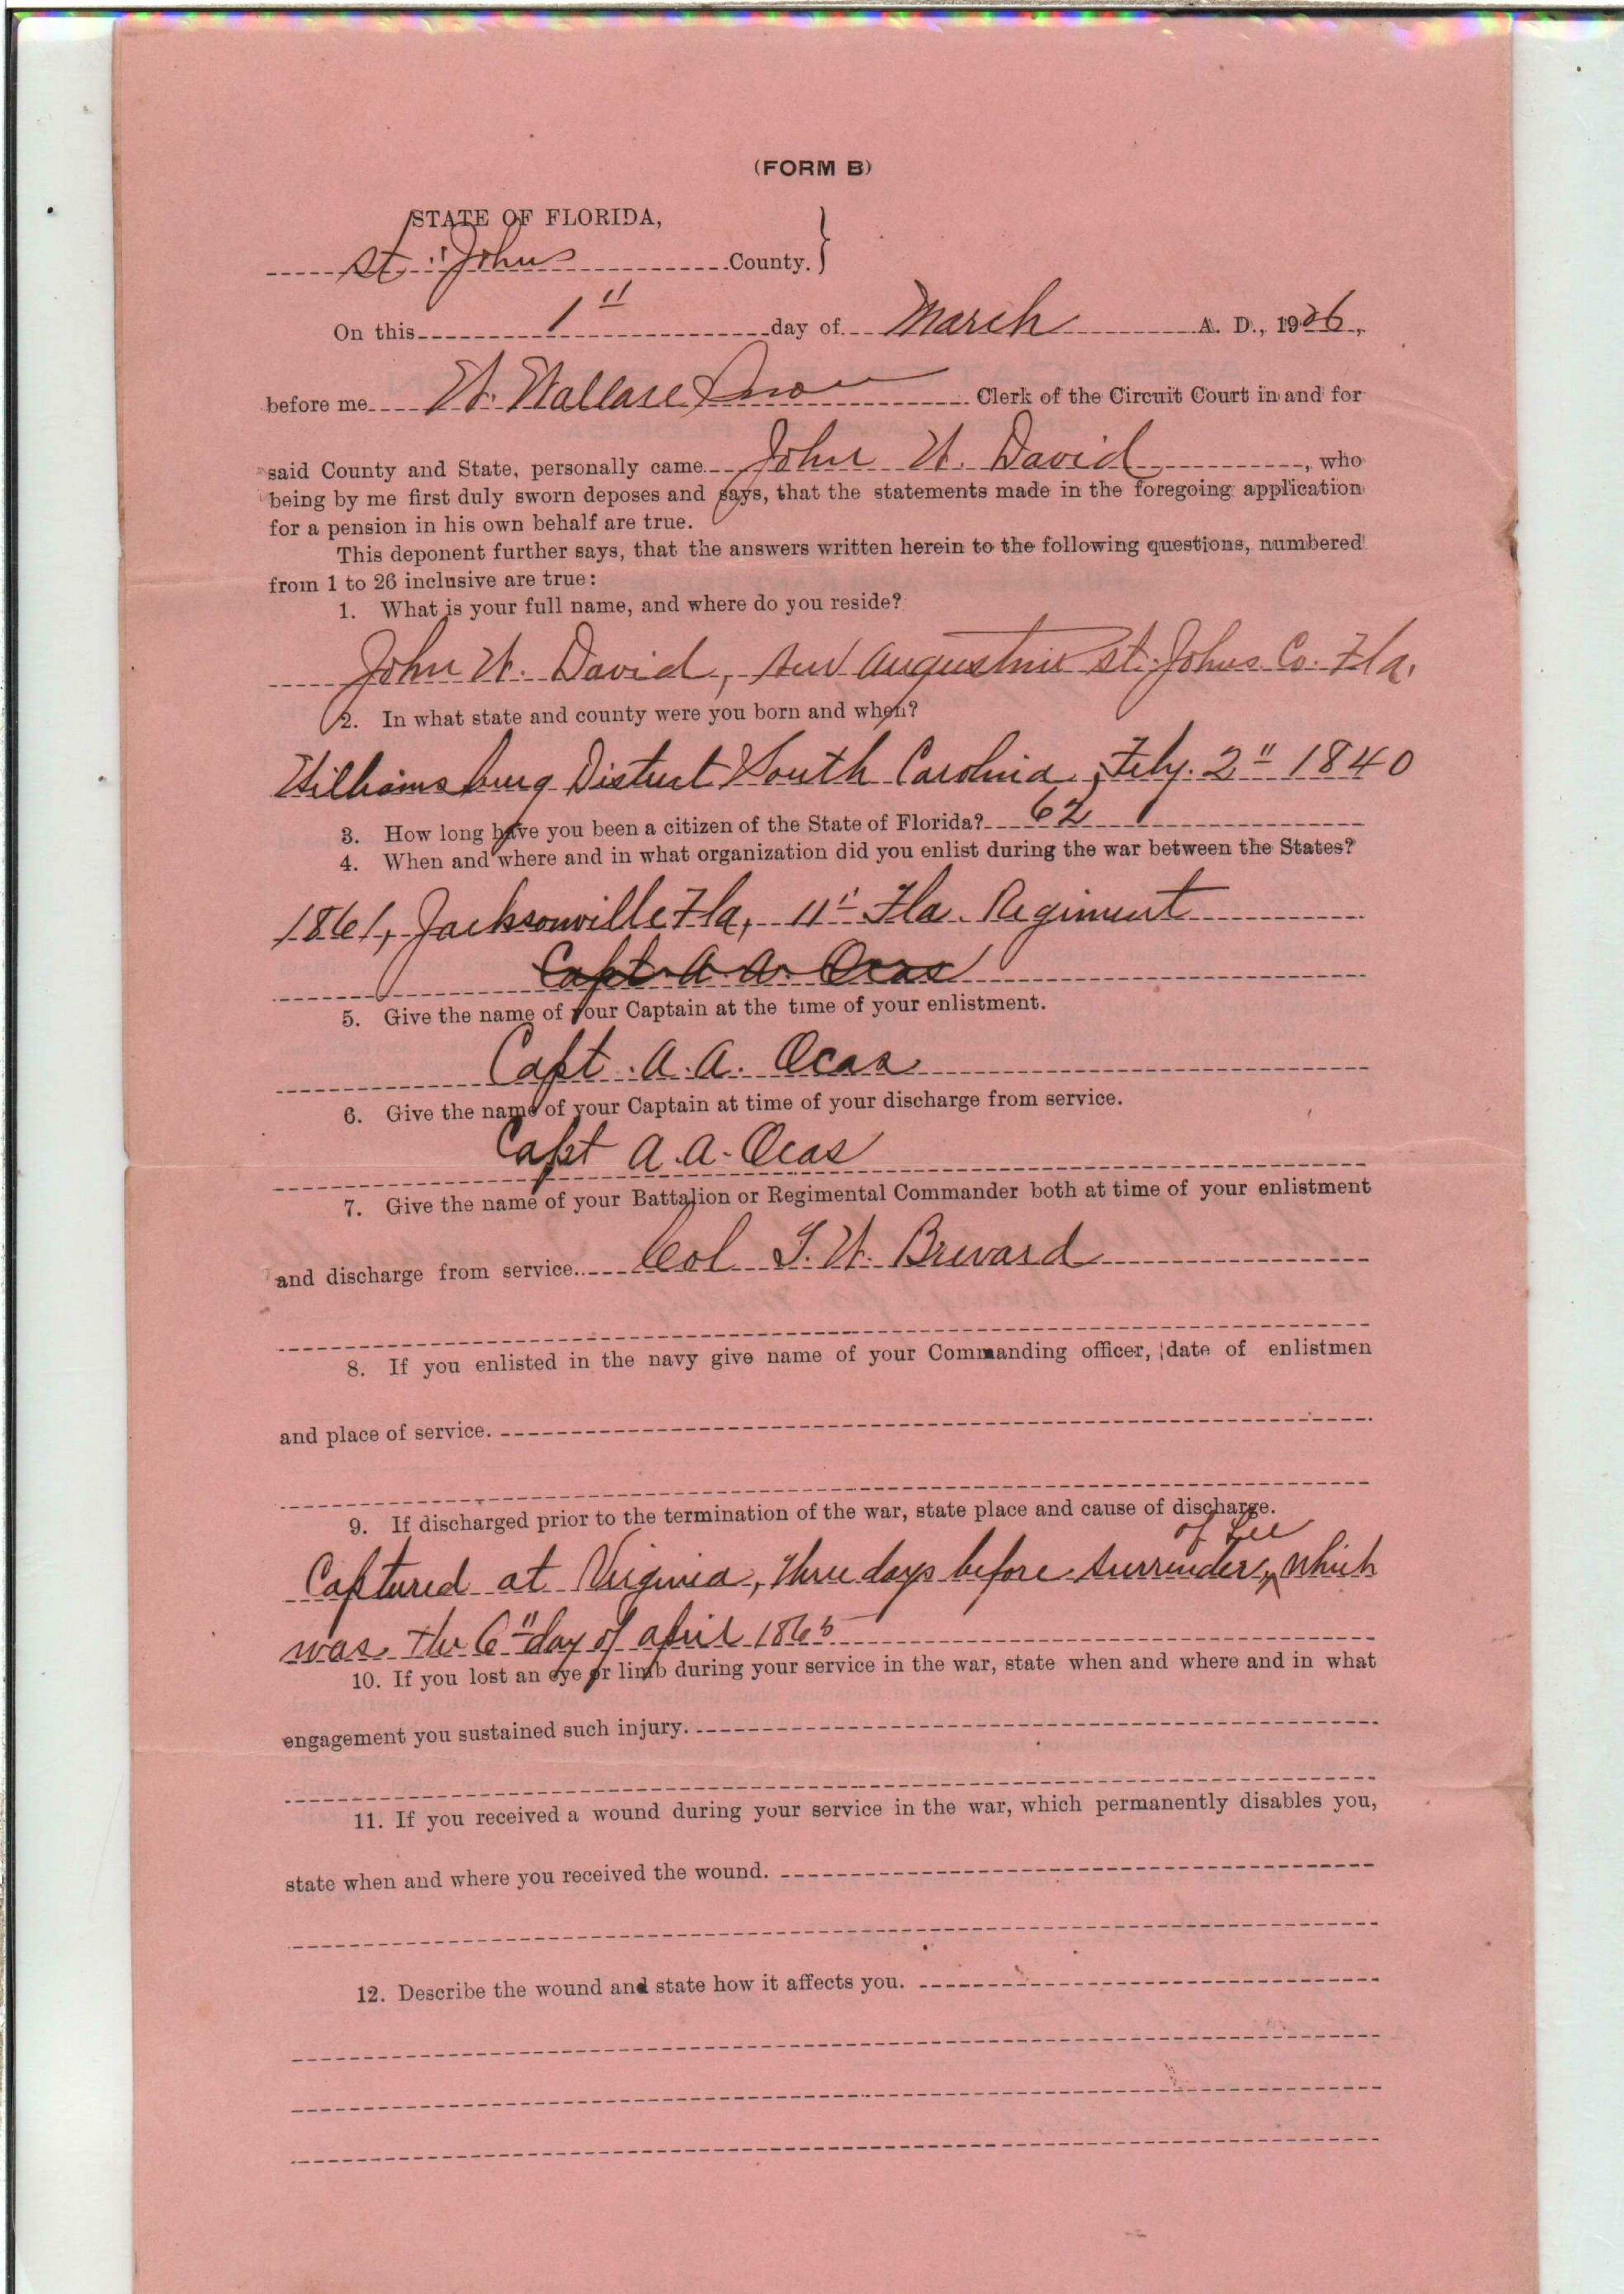 (FORM B)
STATE OF FLORIDA,
St. Johns County.
On this 1" day of March A. D., 1906,
before me W. Wallace Snow Clerk of the Circuit Court in and for
said County and State, personally came John W. David, who
being by me first duly sworn deposes and says, that the statements made in the foregoing application
for a pension in his own behalf are true.
This deponent further says, that the answers written herein to the following questions, numbered
from 1 to 26 inclusive are true:
1. What is your full name, and where do you reside?
John W. David, Augustine St. Johns Co. Fla.
2. In what state and county were you born and when?
Williamsburg District South Carolina, Feby. 2" 1840
3. How long have you been a citizen of the State of Florida? 62
4. When and where and in what organization did you enlist during the war between the States?
1861, Jacksonville Fla, 11" Fla. Regiment
Capt. A. A. Ocas
5. Give the name of your Captain at the time of your enlistment.
Capt. A. A. Ocas
6. Give the name of your Captain at time of your discharge from service.
Capt A. A. Ocas
7. Give the name of your Battalion or Regimental Commander both at time of your enlistment
and discharge from service. Col T. W. Brevard
8. If you enlisted in the navy give name of your Commanding officer, date of enlistmen
and place of service.
9. If discharged prior to the termination of the war, state place and cause of discharge.
Captured at Virginia, three days before surrender, of Lee which
was the 6" day of april 1865
10. If you lost an eye or limb during your service in the war, state when and where and in what
engagement you sustained such injury.
11. If you received a wound during your service in the war, which permanently disables you,
state when and where you received the wound.
12. Describe the wound and state how it affects you.